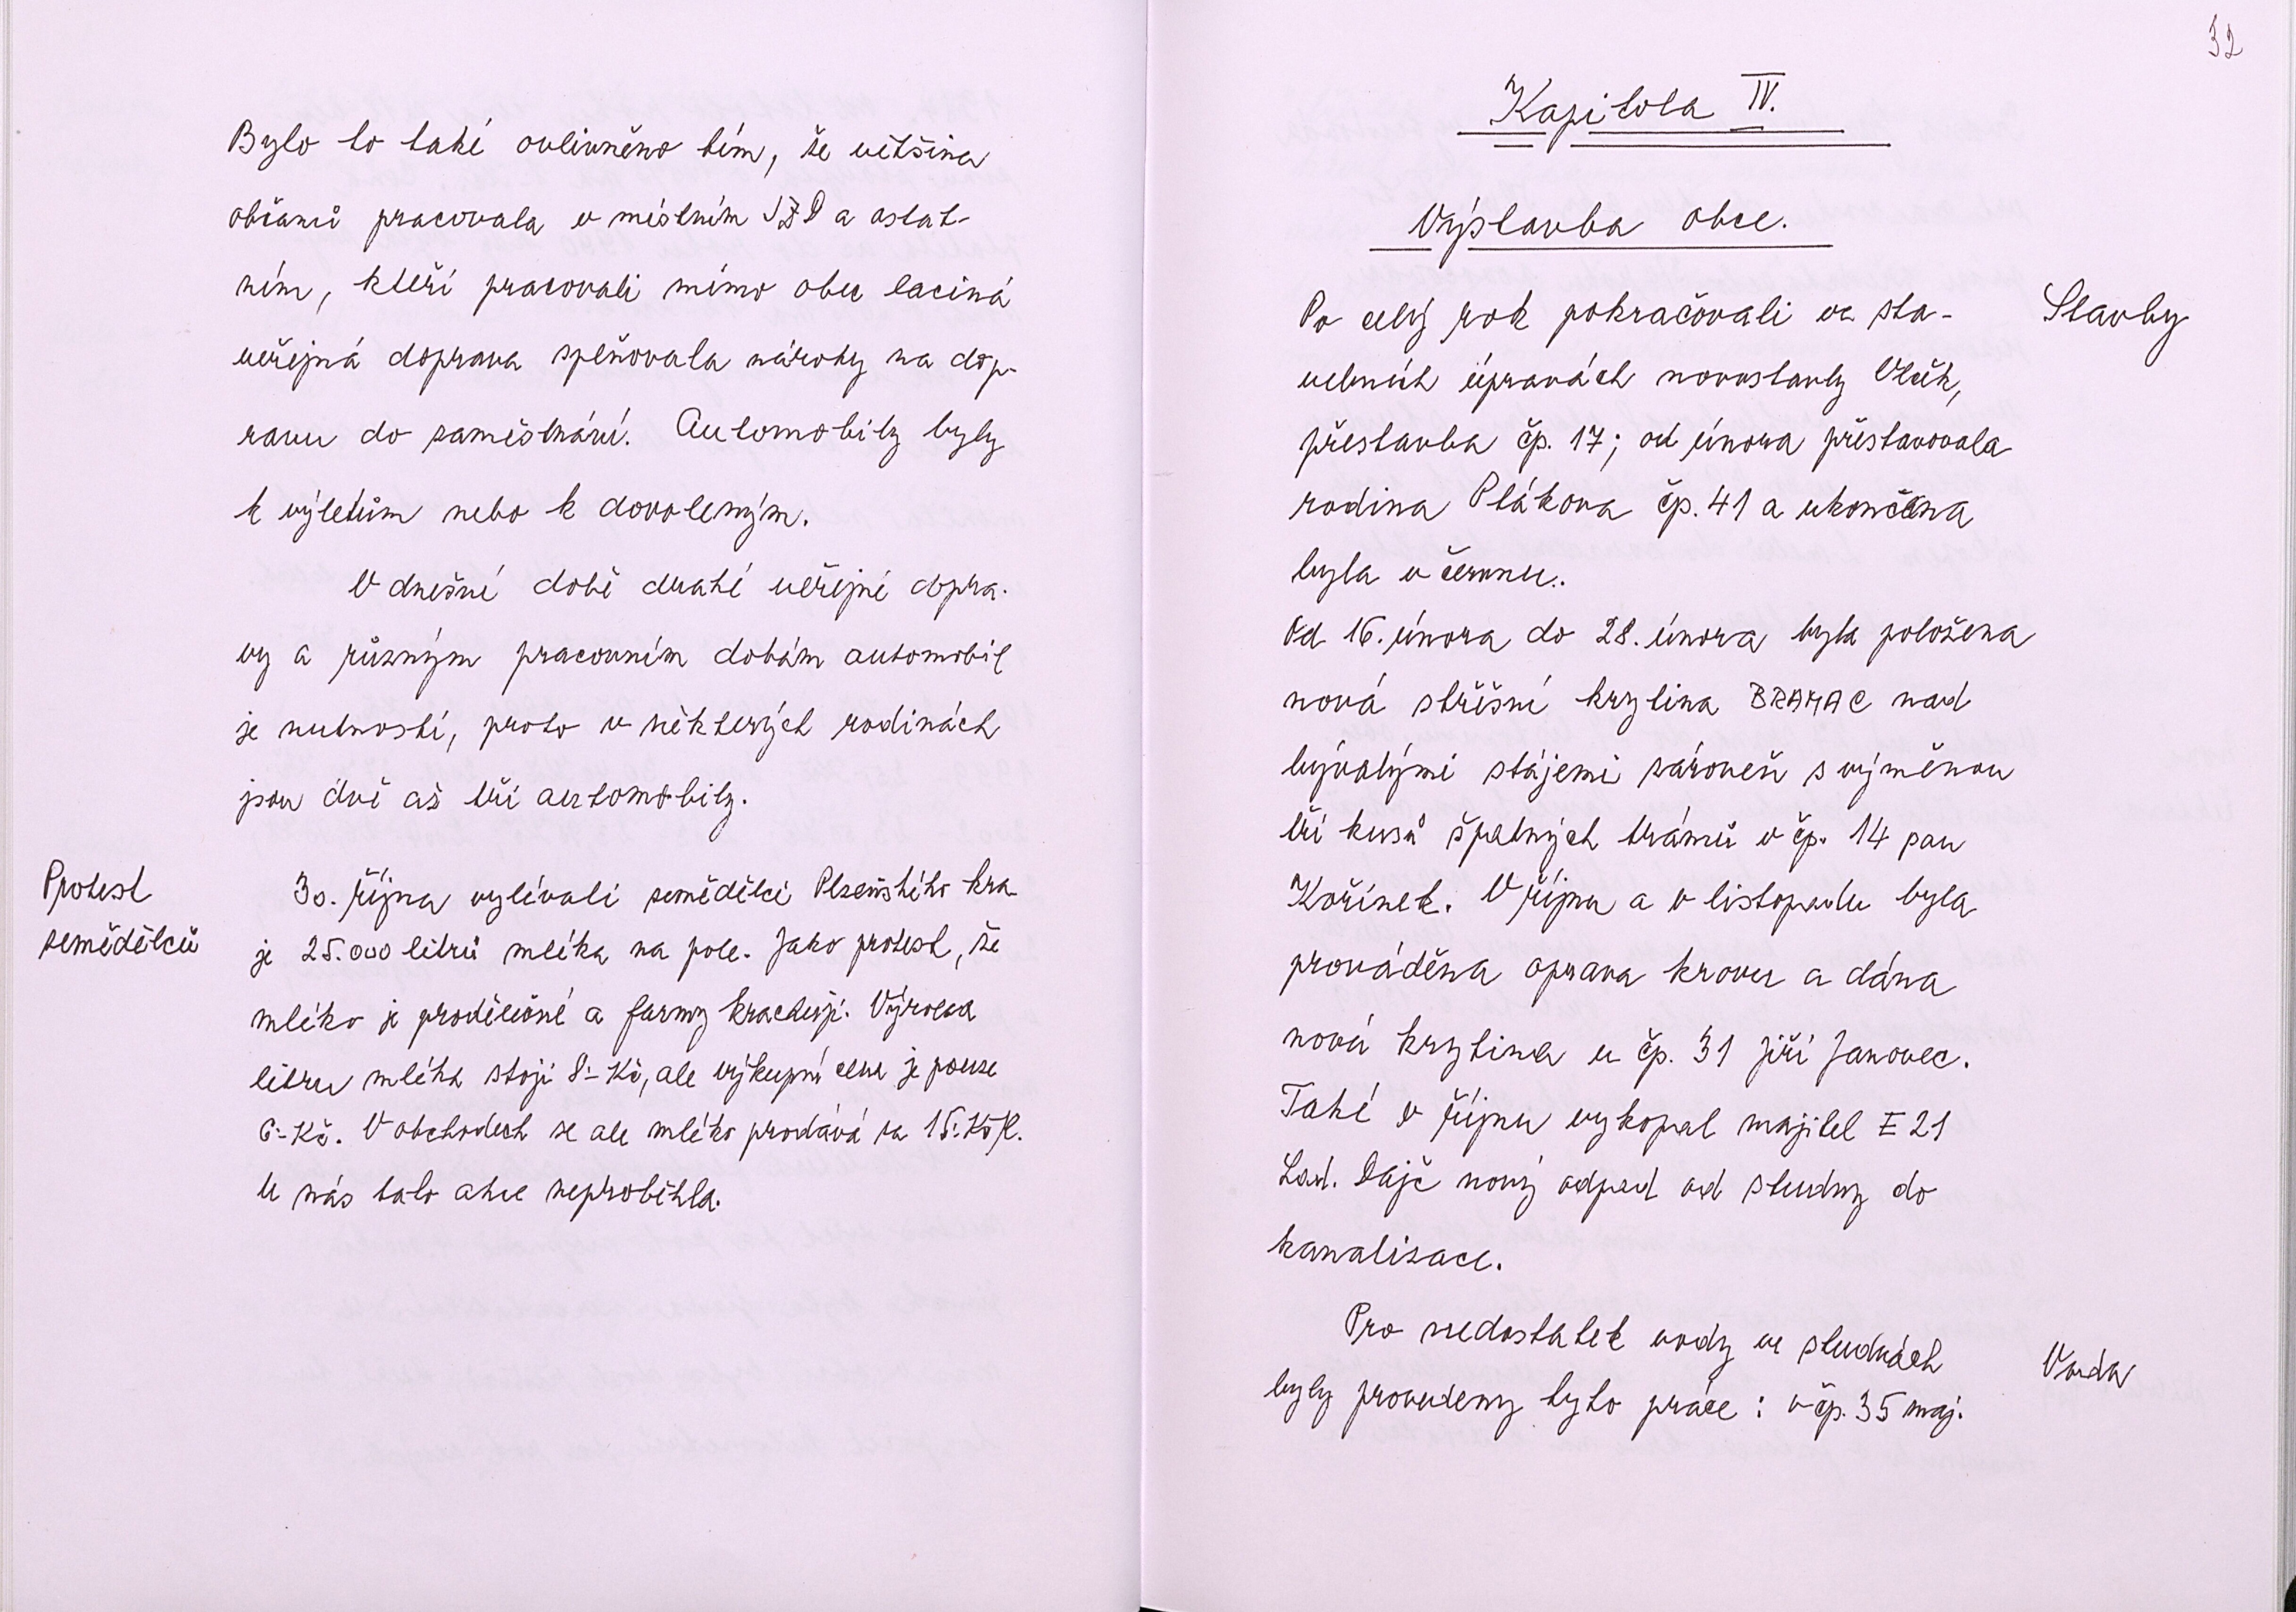 Bylo to také ovlivněno tím, že většina
občanů pracovala v místním JZD a ostat-
ním, kteří pracovali mimo obec laciná
veřejná doprava splňovala nároky na dop-
ravu do zaměstnání. Automobily byly
k výletům nebo k dovoleným.
V dnešní době drahé veřejné dopra-
vy a různým pracovním dobám automobil
je nutností, proto v některých rodinách
jsou dvě až tři automobily.
Protest
zemědělců
30. října vylévali zemědělci Plzeňského kra
je 25.000 litrů mléka na pole. Jako protest, že
mléko je prodělečné a farmy krachují. Výroba
litru mléka stojí 8,- Kč, ale výkupní cena je pouze
6,- Kč. V obchodech se ale mléko prodává za 15,- Kč/l.
U nás tato akce neproběhla.
32
Kapitola IV.
Výstavba obce.
Stavby
Po celý rok pokračovali ve sta-
vebních úpravách novostavby Vlček,
přestavba čp. 17; od února přestavovala
rodina Ptákova čp. 41 a ukončena
byla v červnu.
Od 16. února do 28. února byla položena
nová střešní krytina BRAMAC nad
bývalými stájemi zároveň s výměnou
tří kusů špatných trámů v čp. 14 pan
Kořínek. V říjnu a v listopadu byla
prováděna oprava krovu a dána
nová krytina u čp. 31 Jiří Janovec.
Také v říjnu vykopal majitel E 21
Lad. Dajč nový odpad od studny do
kanalizace.
Voda
Pro nedostatek vody ve studnách
byly provedeny tyto práce: v čp. 35 maj.